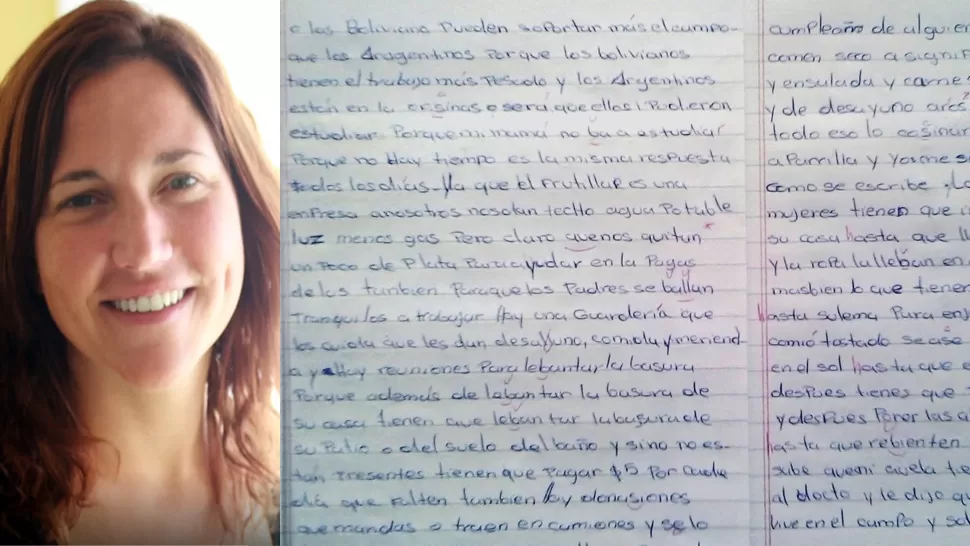 e las Boliviano Pueden soportar más el campo-
que los Arugentinos Porque los bolivianos
tienen el trabajo más Pesado y los Argentinos
están en la o será que ellos i Pudieron
estudiar Porque mi mamá no ba a estudiar
Porque no Hay tiempo es la misma respuesta
todos los días. Ya que El Frutillar es una
enpresa anosotros nos dan techo agua Potable
luz menos gas Pero claro que nos quitan
un Poco de Plata Para ayudar en la Pagas
de los tanbien Para que los Padres se ballan
Tranquilos a trabajar Hay una Guardería que
les cuida que les dan desalluno, comida y meriend
a y Hay reuniones Para lebantar la basura
Porque además de lebantar la basura de
su casa tienen que lebantar la basura de
su Patio o del suelo del baño y sino no es-
tan Presentes tienen que Pagar $5 Por cada
dia que falten tambien Hay donasiones
que mandas o traen en camiones y se lo
cumpleaño de alguien
comen seco a signif
y ensalada y carne
y de desayuno
todo eso lo cosinar
a Parrilla y
como se escribe. La
mujeres tienen que
su casa hasta que
y la ropa la lleban en
mas bien lo que tiener
hasta Para
como tostado se ase
en el sol hasta que
despues tienes que
y despues Poner las
hasta que rebienten
sube tie
al docto y le dijo qu
live en el campo y